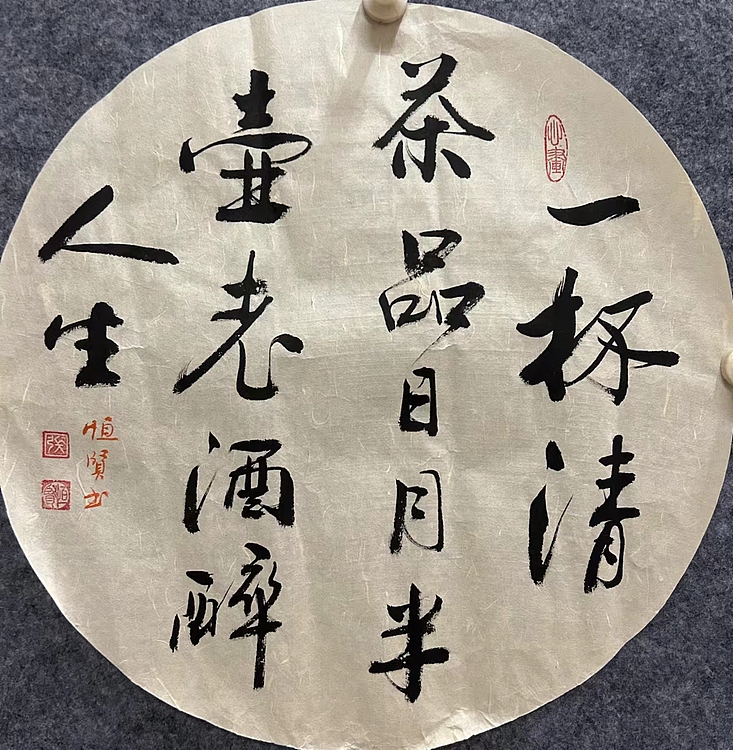 一杯清
茶品日月半
壶老酒醉
人生
恒贤书
张